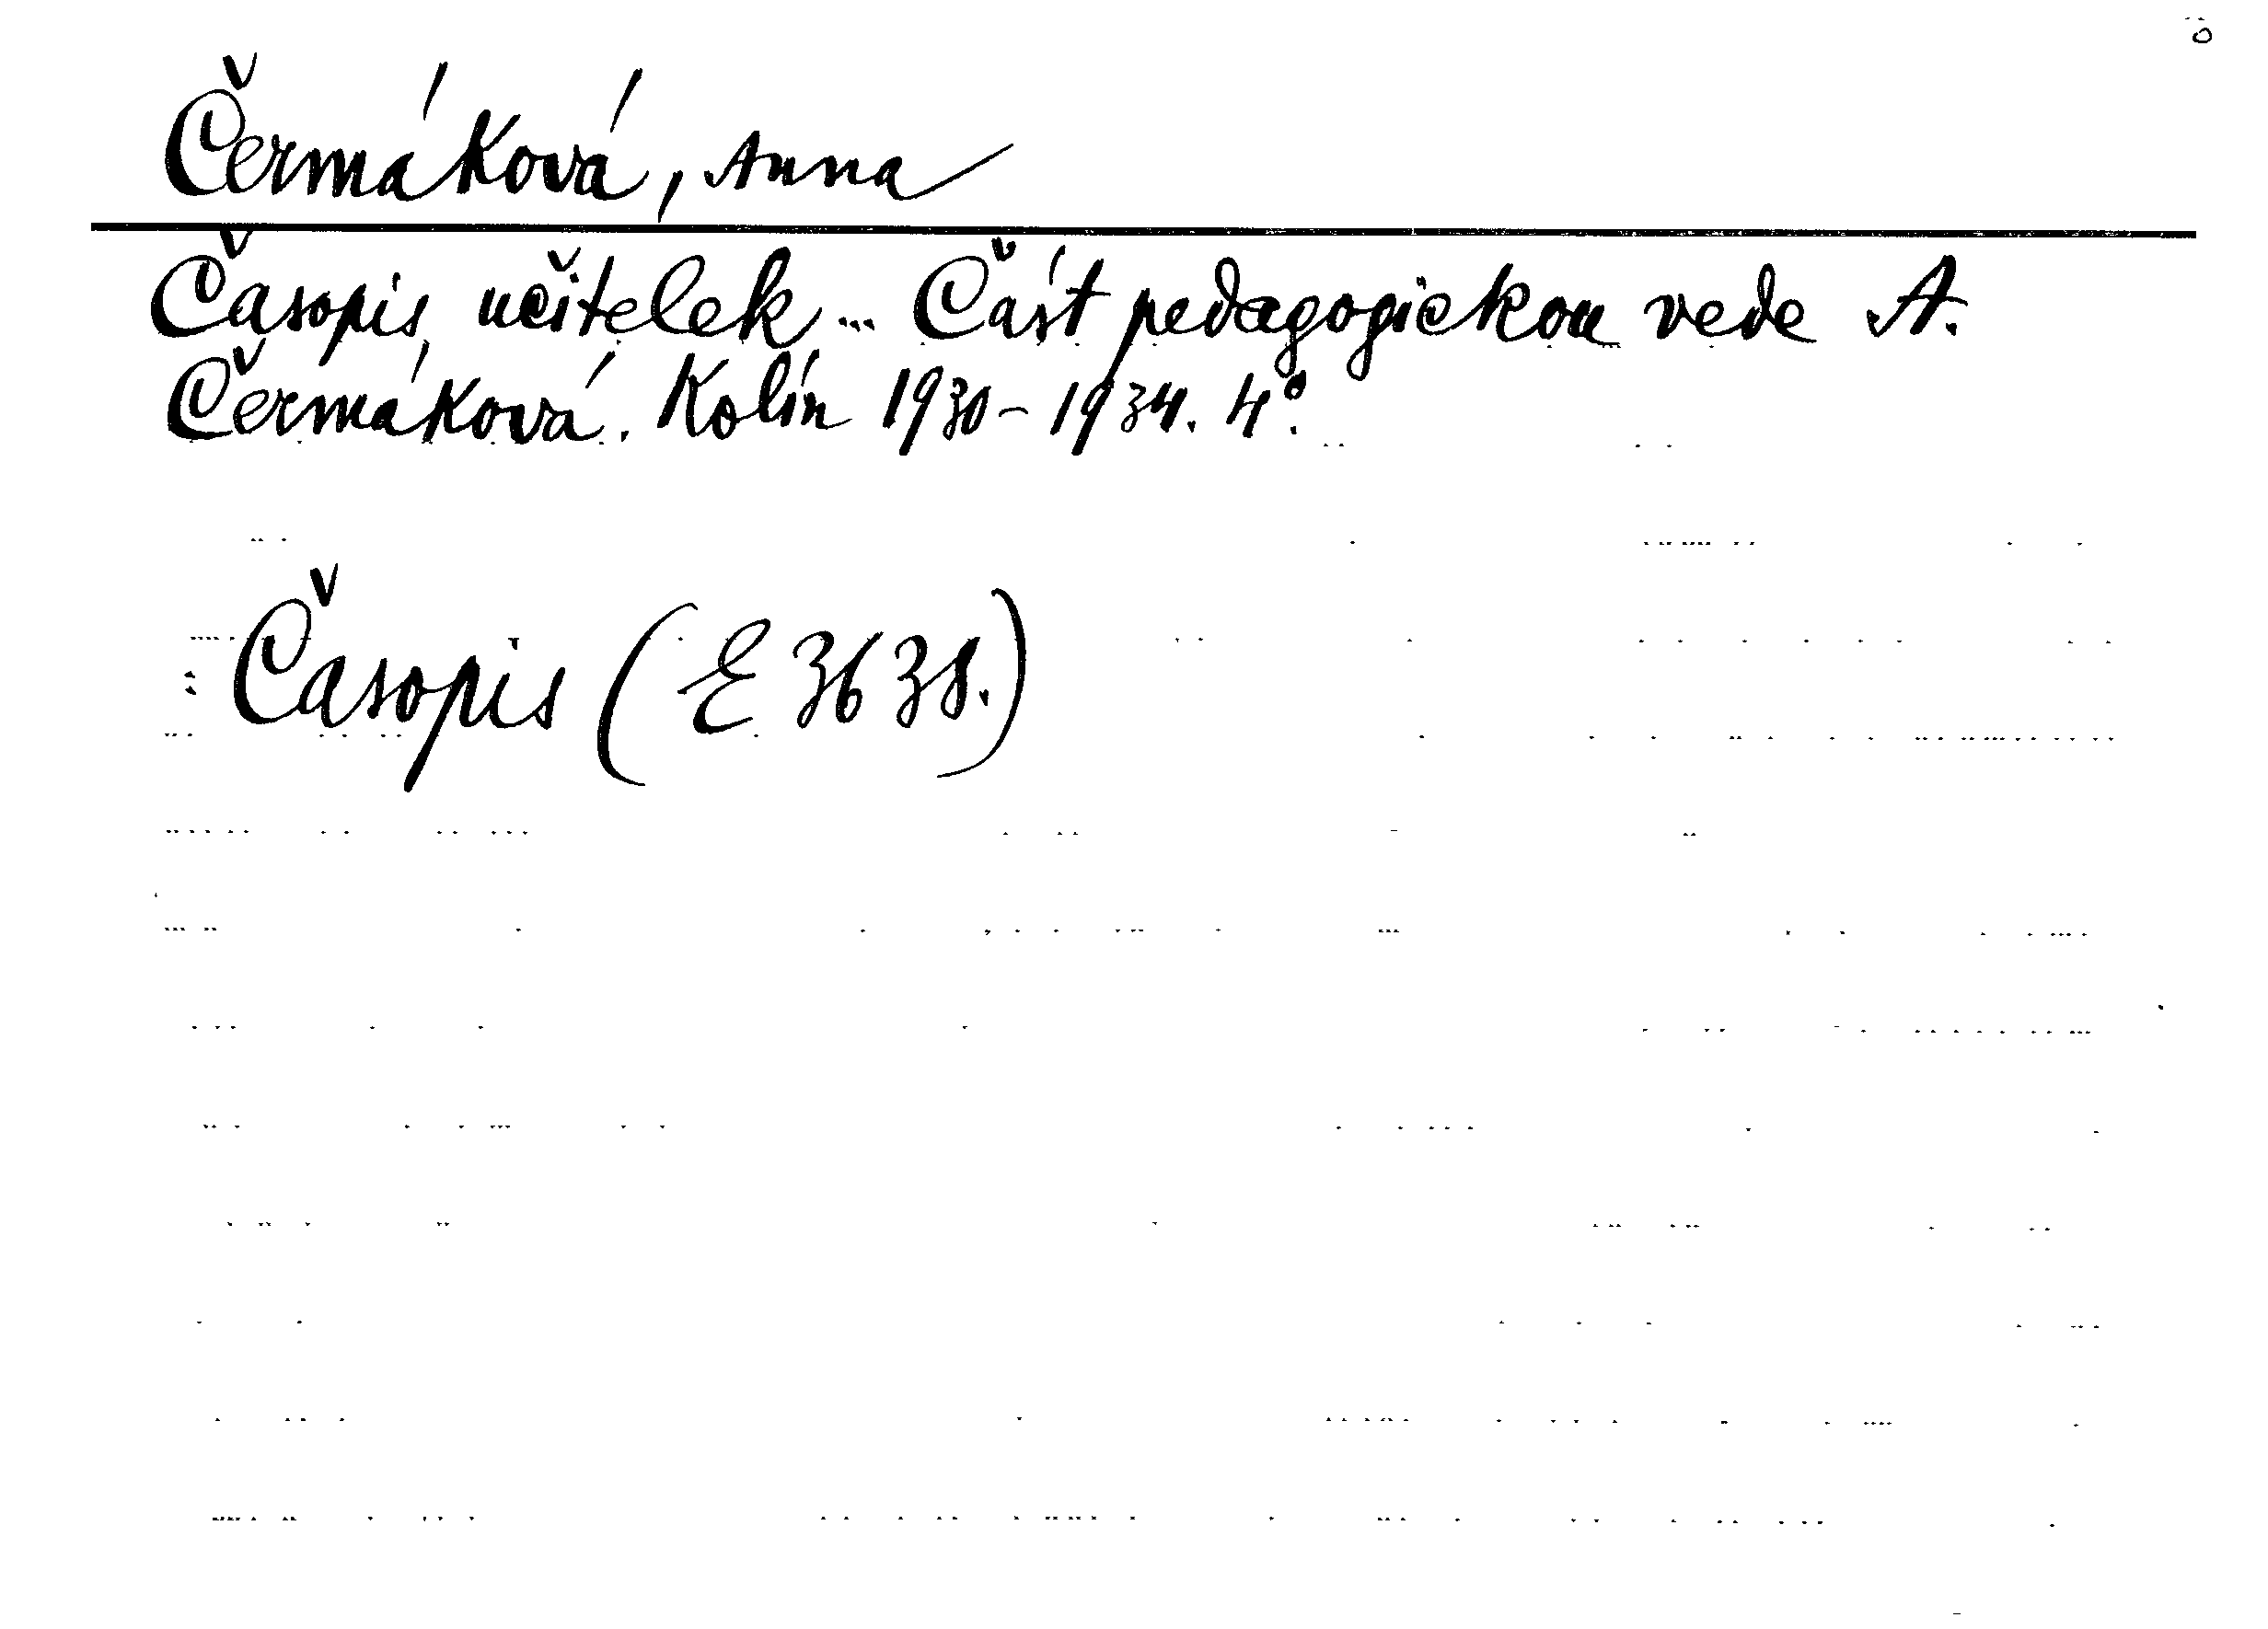 Čermáková, Anna
Časopis učitelek... Část pedagogickou vede A.
Čermáková. Kolín 1930-1934. 4°.
Časopis (E 3638.)